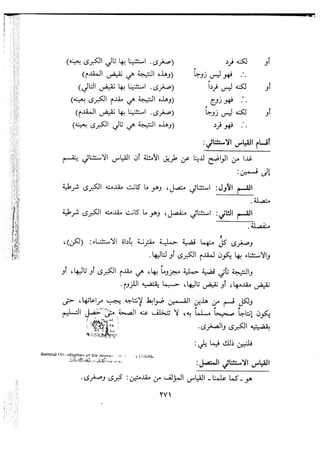 أو لكنه فرد (وصغرى . استثني بها تالي الكبرى بعينه)
∴ فهو ليس زوجاً (وهذه النتيجة هي نقيض المقدم)
أو لكنه ليس فرداً (وصغرى . استثني بها نقيض التالي)
∴ فهو زوج (وهذه النتيجة هي مقدم الكبرى بعينه)
أو لكنه ليس زوجاً (وصغرى . استثني بها نقيض المقدم)
∴ فهو فرد (وهذه النتيجة هي تالي الكبرى بعينه)
أقسام القياس الاستثنائي :
هذا من الحوالي عن لدينا طريق الأمثلة أن القياس الاستثنائي ينقسم
إلى قسمين :
القسم الأول : استثنائي متصل ، وهو ما كانت مقدمته الكبرى شرطية
متصلة .
القسم الثاني : استثنائي منفصل ، وهو ما كانت مقدمته الكبرى شرطية
منفصلة .
وصغرى كل منهما قضية حملية مقترنة بأداة الاستثناء : (لكن) ،
والاستثناء بها يكون لمقدم الكبرى أو تاليها .
والنتيجة تأتي قضية حملية مجزوماً بها ، هي مقدم الكبرى أو تاليها ، أو
نقيض مقدمها ، أو نقيض تاليها ، حسب مقتضى اللزوم .
ولكل قسم من هذين القسمين ضوابط لإنتاجه بحسب نوع قضاياها ، حتى
يكون إنتاجها صحيحاً سليماً به ، لا يختلف عنه الصدق متى حصل التسليم
بقضيته الكبرى والصغرى .
فلنبين ذلك فيما يلي :
القياس الاستثنائي المتصل :
هو - كما علمنا - القياس المؤلف من مقدمتين : كبرى وصغرى .
٢٧١